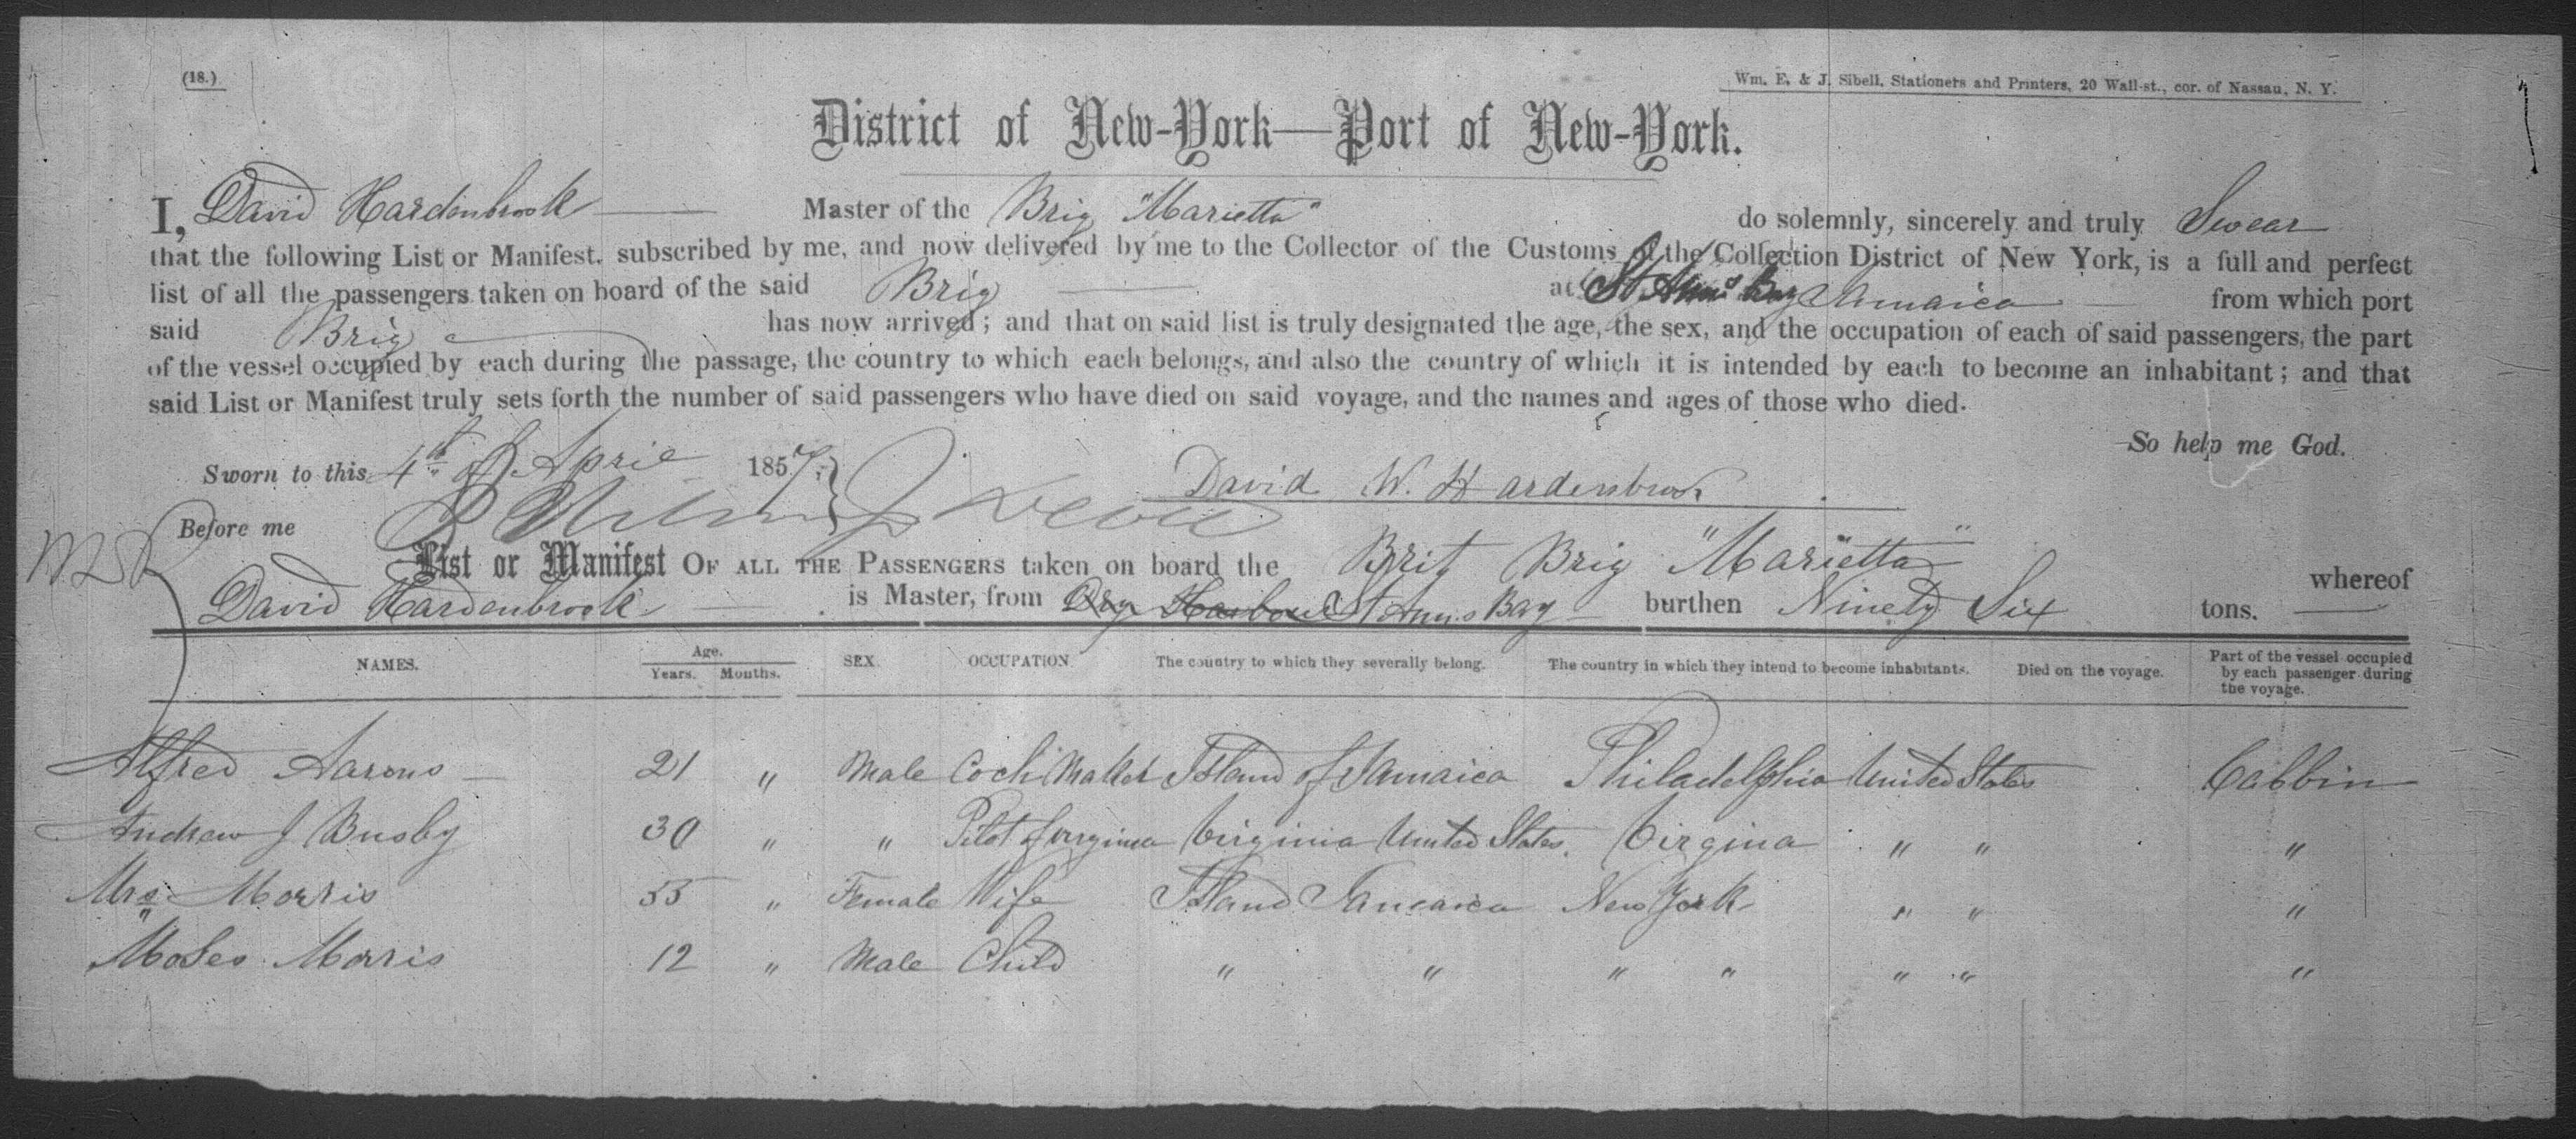 (18.)
Wm. E. & J. Sibell, Stationers and Printers, 20 Wall-st., cor. of Nassau, N. Y.
District of New-York—Port of New-York.
I, David Hardenbrook Master of the Brig "Marietta" do solemnly, sincerely and truly Swear
that the following List or Manifest, subscribed by me, and now delivered by me to the Collector of the Customs of the Collection District of New York, is a full and perfect
list of all the passengers taken on board of the said Brig at St Anns Bay Jamaica from which port
said Brig has now arrived; and that on said list is truly designated the age, the sex, and the occupation of each of said passengers, the part
of the vessel occupied by each during the passage, the country to which each belongs, and also the country of which it is intended by each to become an inhabitant; and that
said List or Manifest truly sets forth the number of said passengers who have died on said voyage, and the names and ages of those who died.
So help me God.
Sworn to this 4th of April 1857
David W. Hardenbrook
Before me
List or Manifest OF ALL THE PASSENGERS taken on board the Brit Brig "Marietta" whereof
David Hardenbrook is Master, from Dry Harbour St Anns Bay burthen Ninety Six tons.
NAMES. Age. Years. Months. SEX. OCCUPATION. The country to which they severally belong. The country in which they intend to become inhabitants. Died on the voyage. Part of the vessel occupied by each passenger during the voyage.
Alfred Aarons 21 " Male Coch Maker Island of Jamaica Philadelphia United States Cabbin
Andrew J Busby 30 " " Pilot Virginia United States Virgina " " "
Mrs Morris 55 " Female Wife Island Jamaica New York " " "
Moses Morris 12 " Male Child " " " " " " "